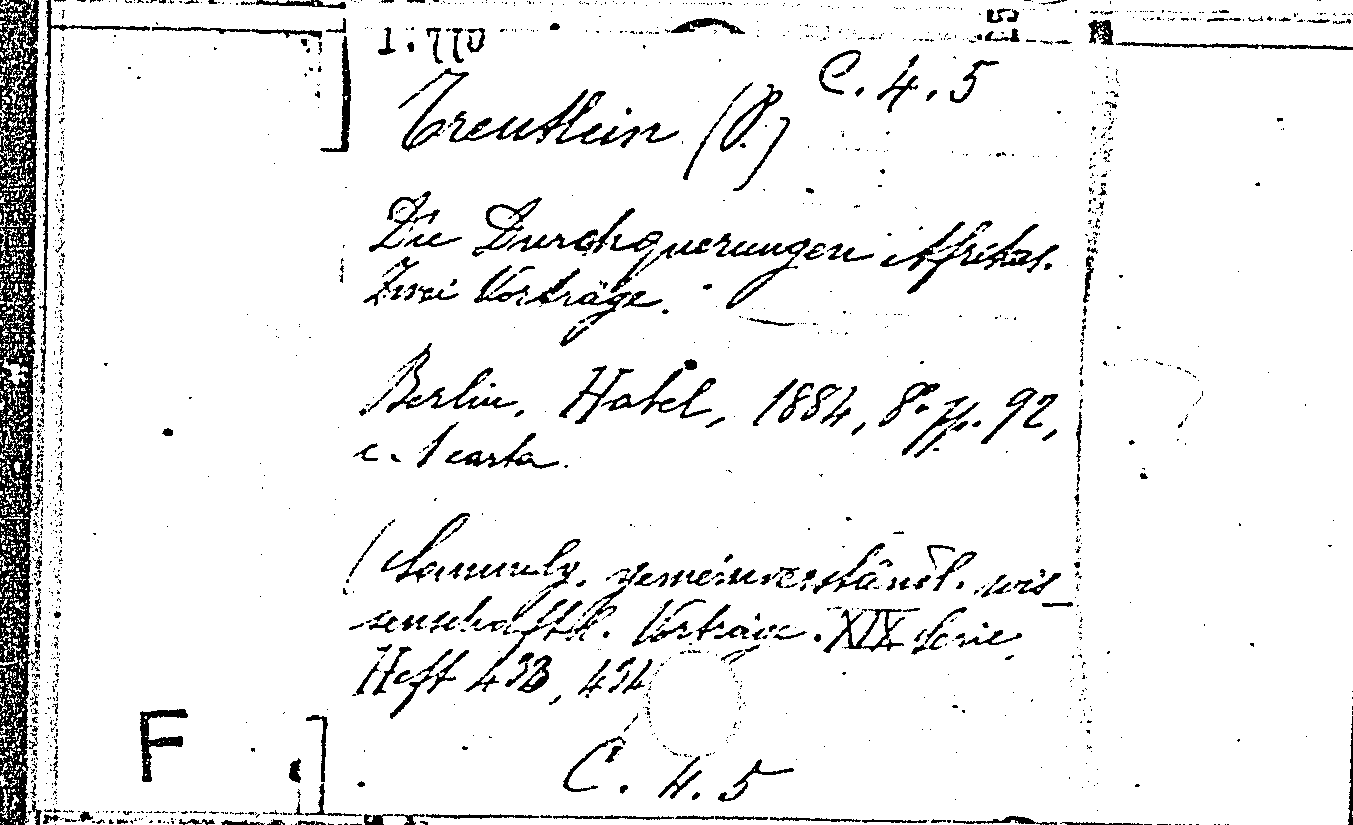 1.770
C.4.5
Treutlein (P.)
Die Durchquerungen Afrikas.
Zwei Vorträge.
Berlin, Habel, 1884, 8.° pp. 92,
c. 1 carta.
(Sammlg. gemeinverständl. wis_
senschaftl. Vorträge. XIX Serie,
Heft 433, 434
F
C. 4. 5